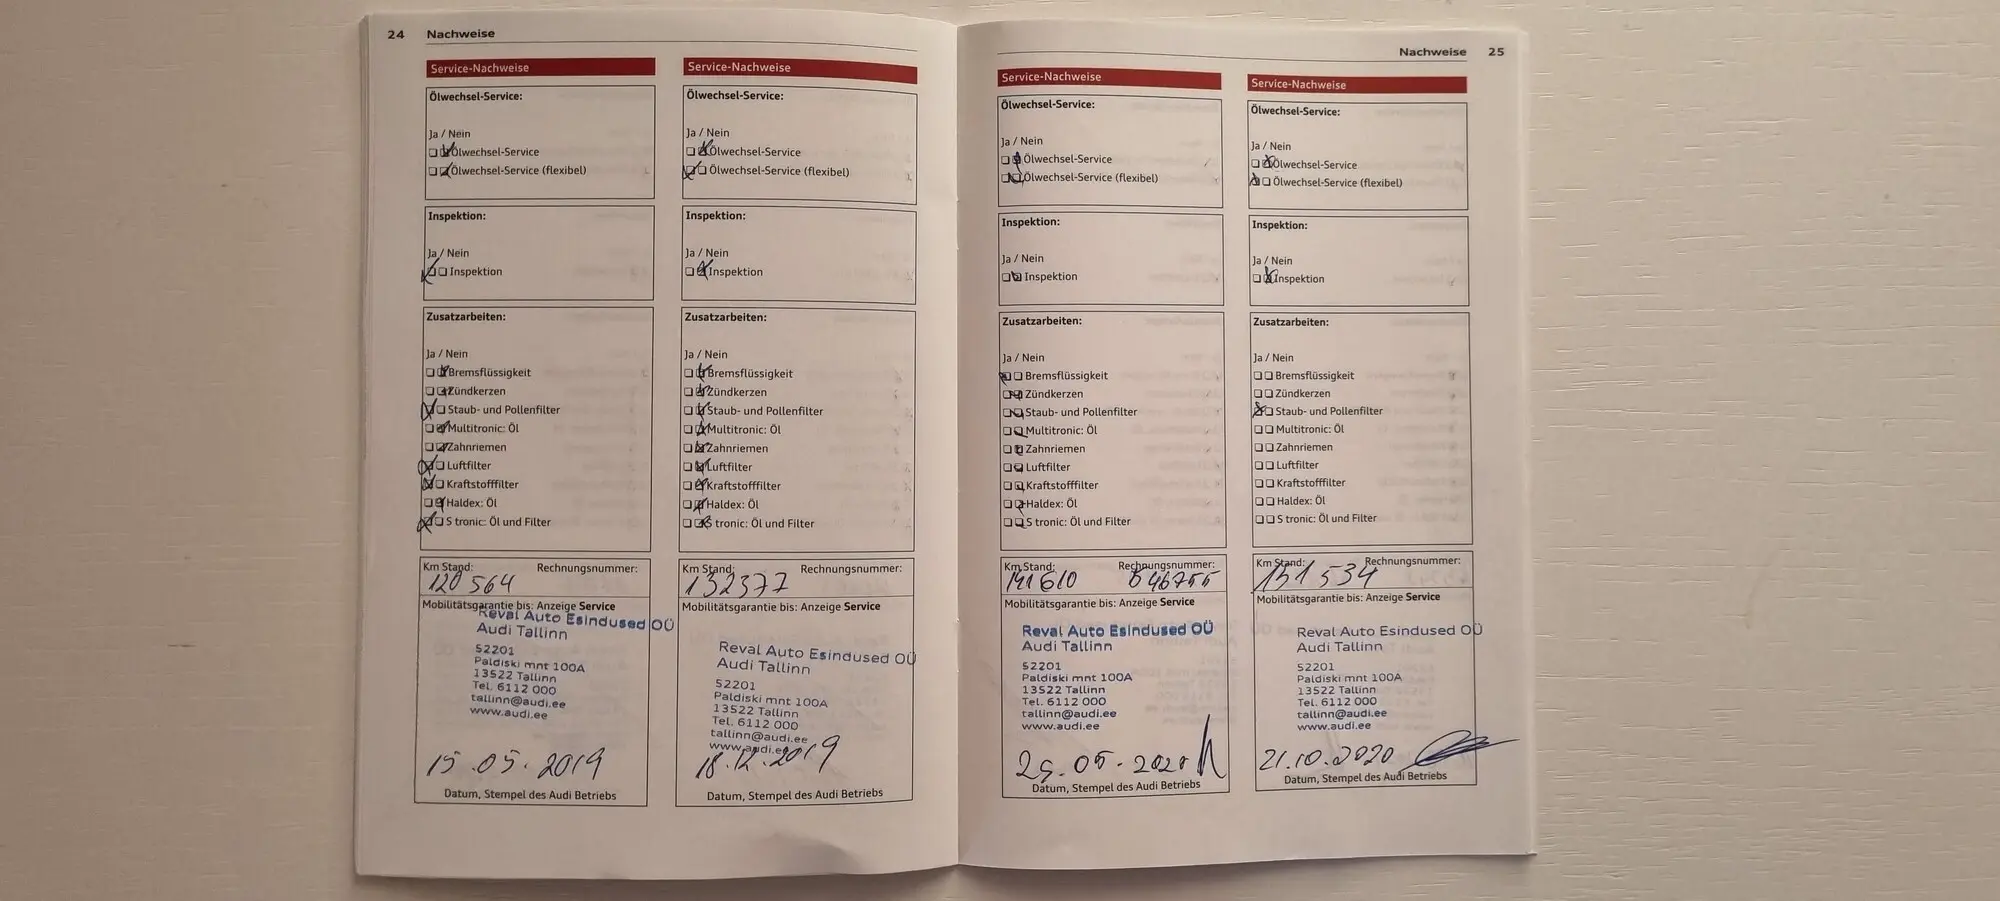 24 Nachweise
Service-Nachweise
Ölwechsel-Service:
Ja / Nein
Ölwechsel-Service
Ölwechsel-Service (flexibel)
Inspektion:
Ja / Nein
Inspektion
Zusatzarbeiten:
Ja / Nein
Bremsflüssigkeit
Zündkerzen
Staub- und Pollenfilter
Multitronic: Öl
Zahnriemen
Luftfilter
Kraftstofffilter
Haldex: Öl
S tronic: Öl und Filter
Km Stand: Rechnungsnummer:
120 564
Mobilitätsgarantie bis: Anzeige Service
Reval Auto Esindused OÜ
Audi Tallinn
52201
Paldiski mnt 100A
13522 Tallinn
Tel. 6112 000
tallinn@audi.ee
www.audi.ee
15.05.2019
Datum, Stempel des Audi Betriebs
Service-Nachweise
Ölwechsel-Service:
Ja / Nein
Ölwechsel-Service
Ölwechsel-Service (flexibel)
Inspektion:
Ja / Nein
Inspektion
Zusatzarbeiten:
Ja / Nein
Bremsflüssigkeit
Zündkerzen
Staub- und Pollenfilter
Multitronic: Öl
Zahnriemen
Luftfilter
Kraftstofffilter
Haldex: Öl
S tronic: Öl und Filter
Km Stand: Rechnungsnummer:
132377
Mobilitätsgarantie bis: Anzeige Service
Reval Auto Esindused OÜ
Audi Tallinn
52201
Paldiski mnt 100A
13522 Tallinn
Tel. 6112 000
tallinn@audi.ee
www.audi.ee
18.12.2019
Datum, Stempel des Audi Betriebs
Nachweise 25
Service-Nachweise
Ölwechsel-Service:
Ja / Nein
Ölwechsel-Service
Ölwechsel-Service (flexibel)
Inspektion:
Ja / Nein
Inspektion
Zusatzarbeiten:
Ja / Nein
Bremsflüssigkeit
Zündkerzen
Staub- und Pollenfilter
Multitronic: Öl
Zahnriemen
Luftfilter
Kraftstofffilter
Haldex: Öl
S tronic: Öl und Filter
Km Stand: Rechnungsnummer:
141610
Mobilitätsgarantie bis: Anzeige Service
Reval Auto Esindused OÜ
Audi Tallinn
52201
Paldiski mnt 100A
13522 Tallinn
Tel. 6112 000
tallinn@audi.ee
www.audi.ee
Datum, Stempel des Audi Betriebs
Service-Nachweise
Ölwechsel-Service:
Ja / Nein
Ölwechsel-Service
Ölwechsel-Service (flexibel)
Inspektion:
Ja / Nein
Inspektion
Zusatzarbeiten:
Ja / Nein
Bremsflüssigkeit
Zündkerzen
Staub- und Pollenfilter
Multitronic: Öl
Zahnriemen
Luftfilter
Kraftstofffilter
Haldex: Öl
S tronic: Öl und Filter
Km Stand: Rechnungsnummer:
151 534
Mobilitätsgarantie bis: Anzeige Service
Reval Auto Esindused OÜ
Audi Tallinn
52201
Paldiski mnt 100A
13522 Tallinn
Tel. 6112 000
tallinn@audi.ee
www.audi.ee
21.10.2020
Datum, Stempel des Audi Betriebs